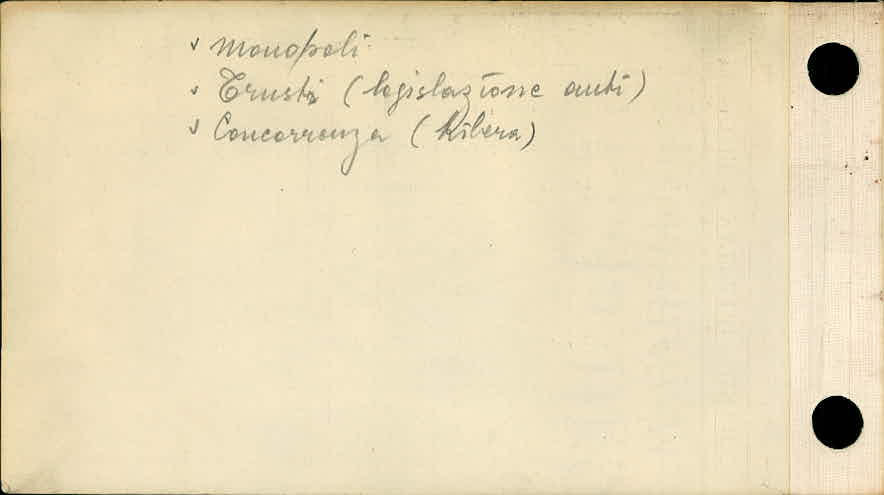 √ Monopoli
√ Trusts (legislazione anti)
√ Concorrenza (libera)